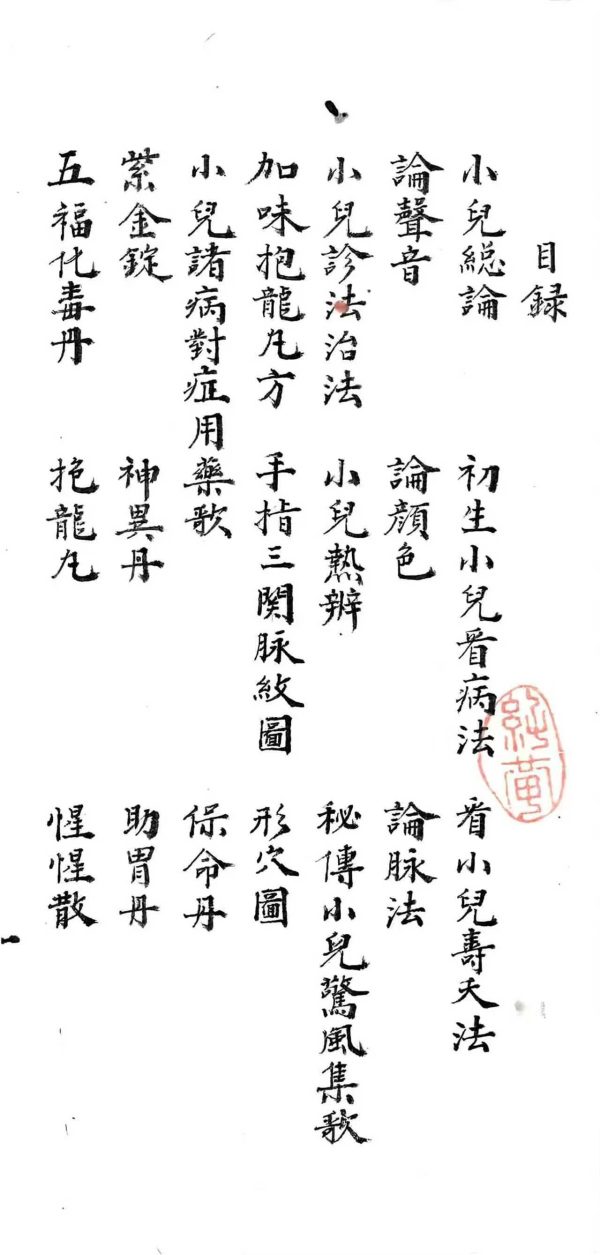 目録
小兒総論 初生小兒看病法 看小兒壽夭法
論聲音 論顔色 論脉法
小兒診法治法 小兒熱辨 秘傳小兒驚風集歌
加味抱龍凡方 手指三関脉紋圖 形穴圖
小兒諸病對症用藥歌 保命丹
紫金錠 神異丹 助胃丹
五福化毒丹 抱龍凡 惺惺散